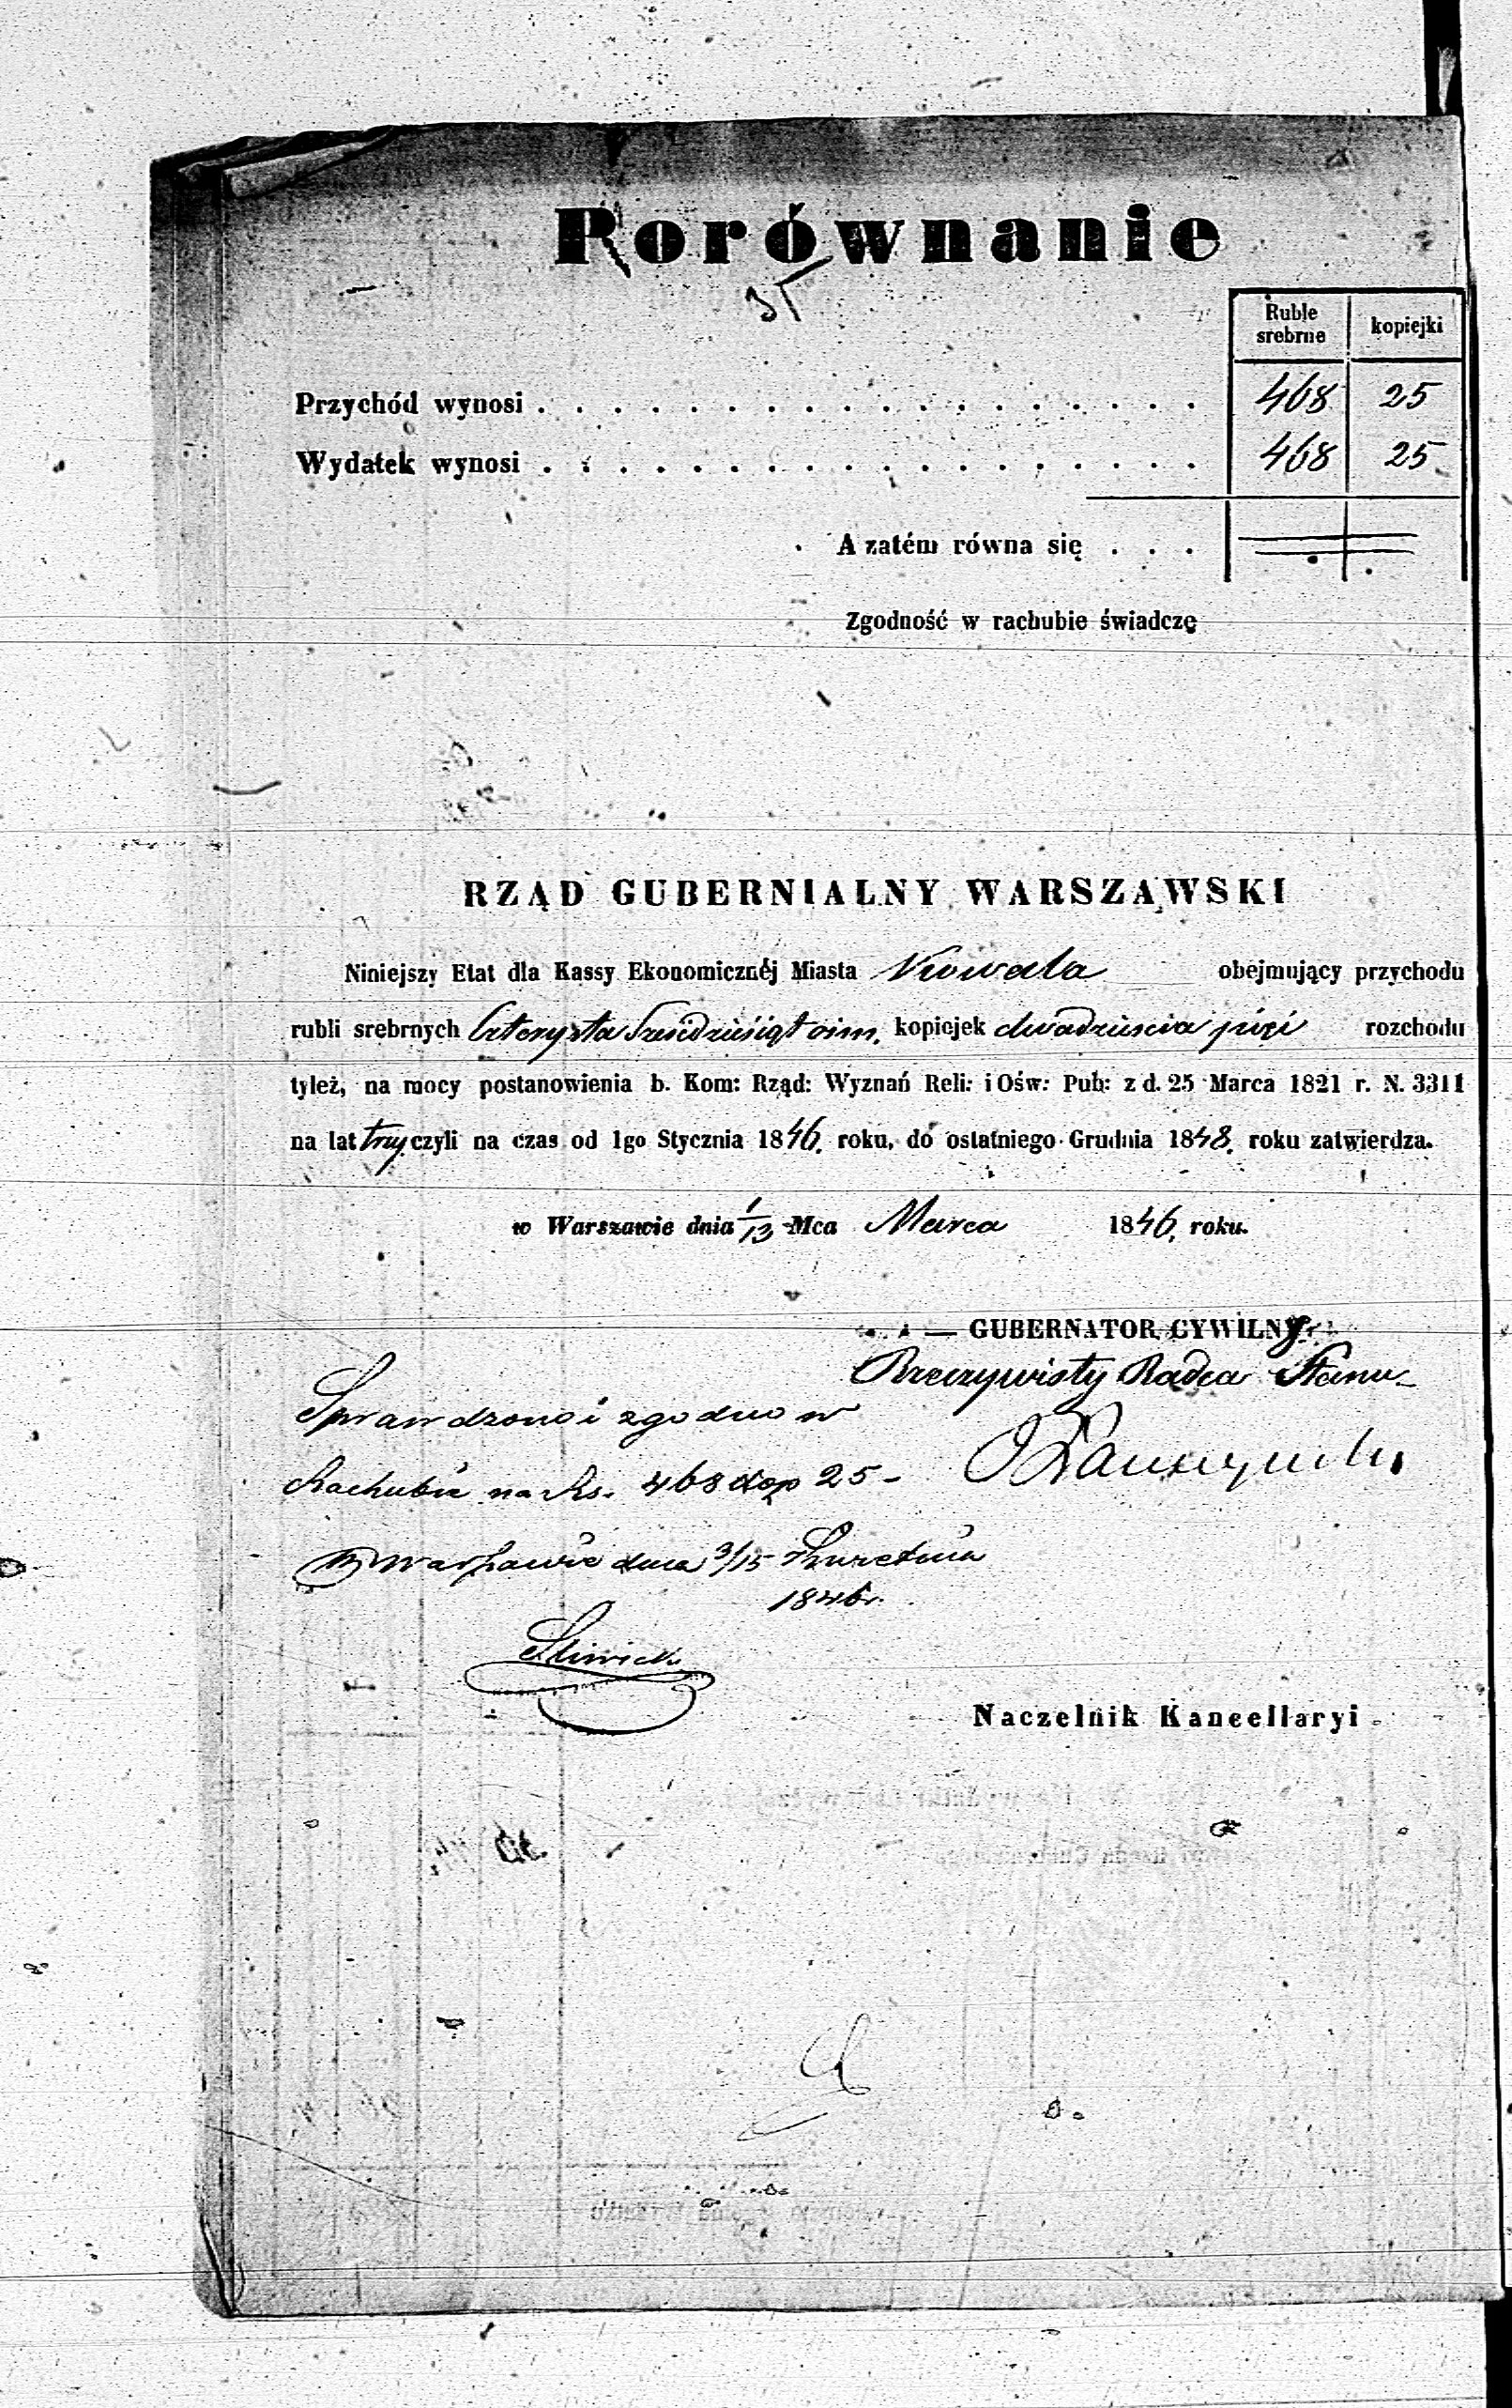 Porównanie
Ruble srebrne kopiejki
Przychód wynosi . . . . . . . . . . . . . . . . . . 468 25
Wydatek wynosi . . . . . . . . . . . . . . . . . . 468 25
A zatém równa się . . .
Zgodność w rachubie świadczę
RZĄD GUBERNIALNY WARSZAWSKI
Niniejszy Etat dla Kassy Ekonomicznéj Miasta Kowala obejmujący przychodu
rubli srebrnych Czterysta Sześdziesiąt ośm. kopiejek dwadzieścia pięć rozchodu
tyleż, na mocy postanowienia b. Kom: Rząd: Wyznań Reli: i Ośw: Pub: z d. 25 Marca 1821 r. N. 3311
na lat trzy czyli na czas od 1go Stycznia 1846. roku, do ostatniego Grudnia 1848. roku zatwierdza.
w Warszawie dnia 1/13 Mca Marca 1846. roku.
— GUBERNATOR CYWILNY
Rzeczywisty Radca Stanu
Sprawdzono i zgodno w
Rachubie na Rs. 468 kop 25 -
w Warszawie dnia 3/15 Kwietnia
1846 r.
Śliwicki
Naczelnik Kancellaryi